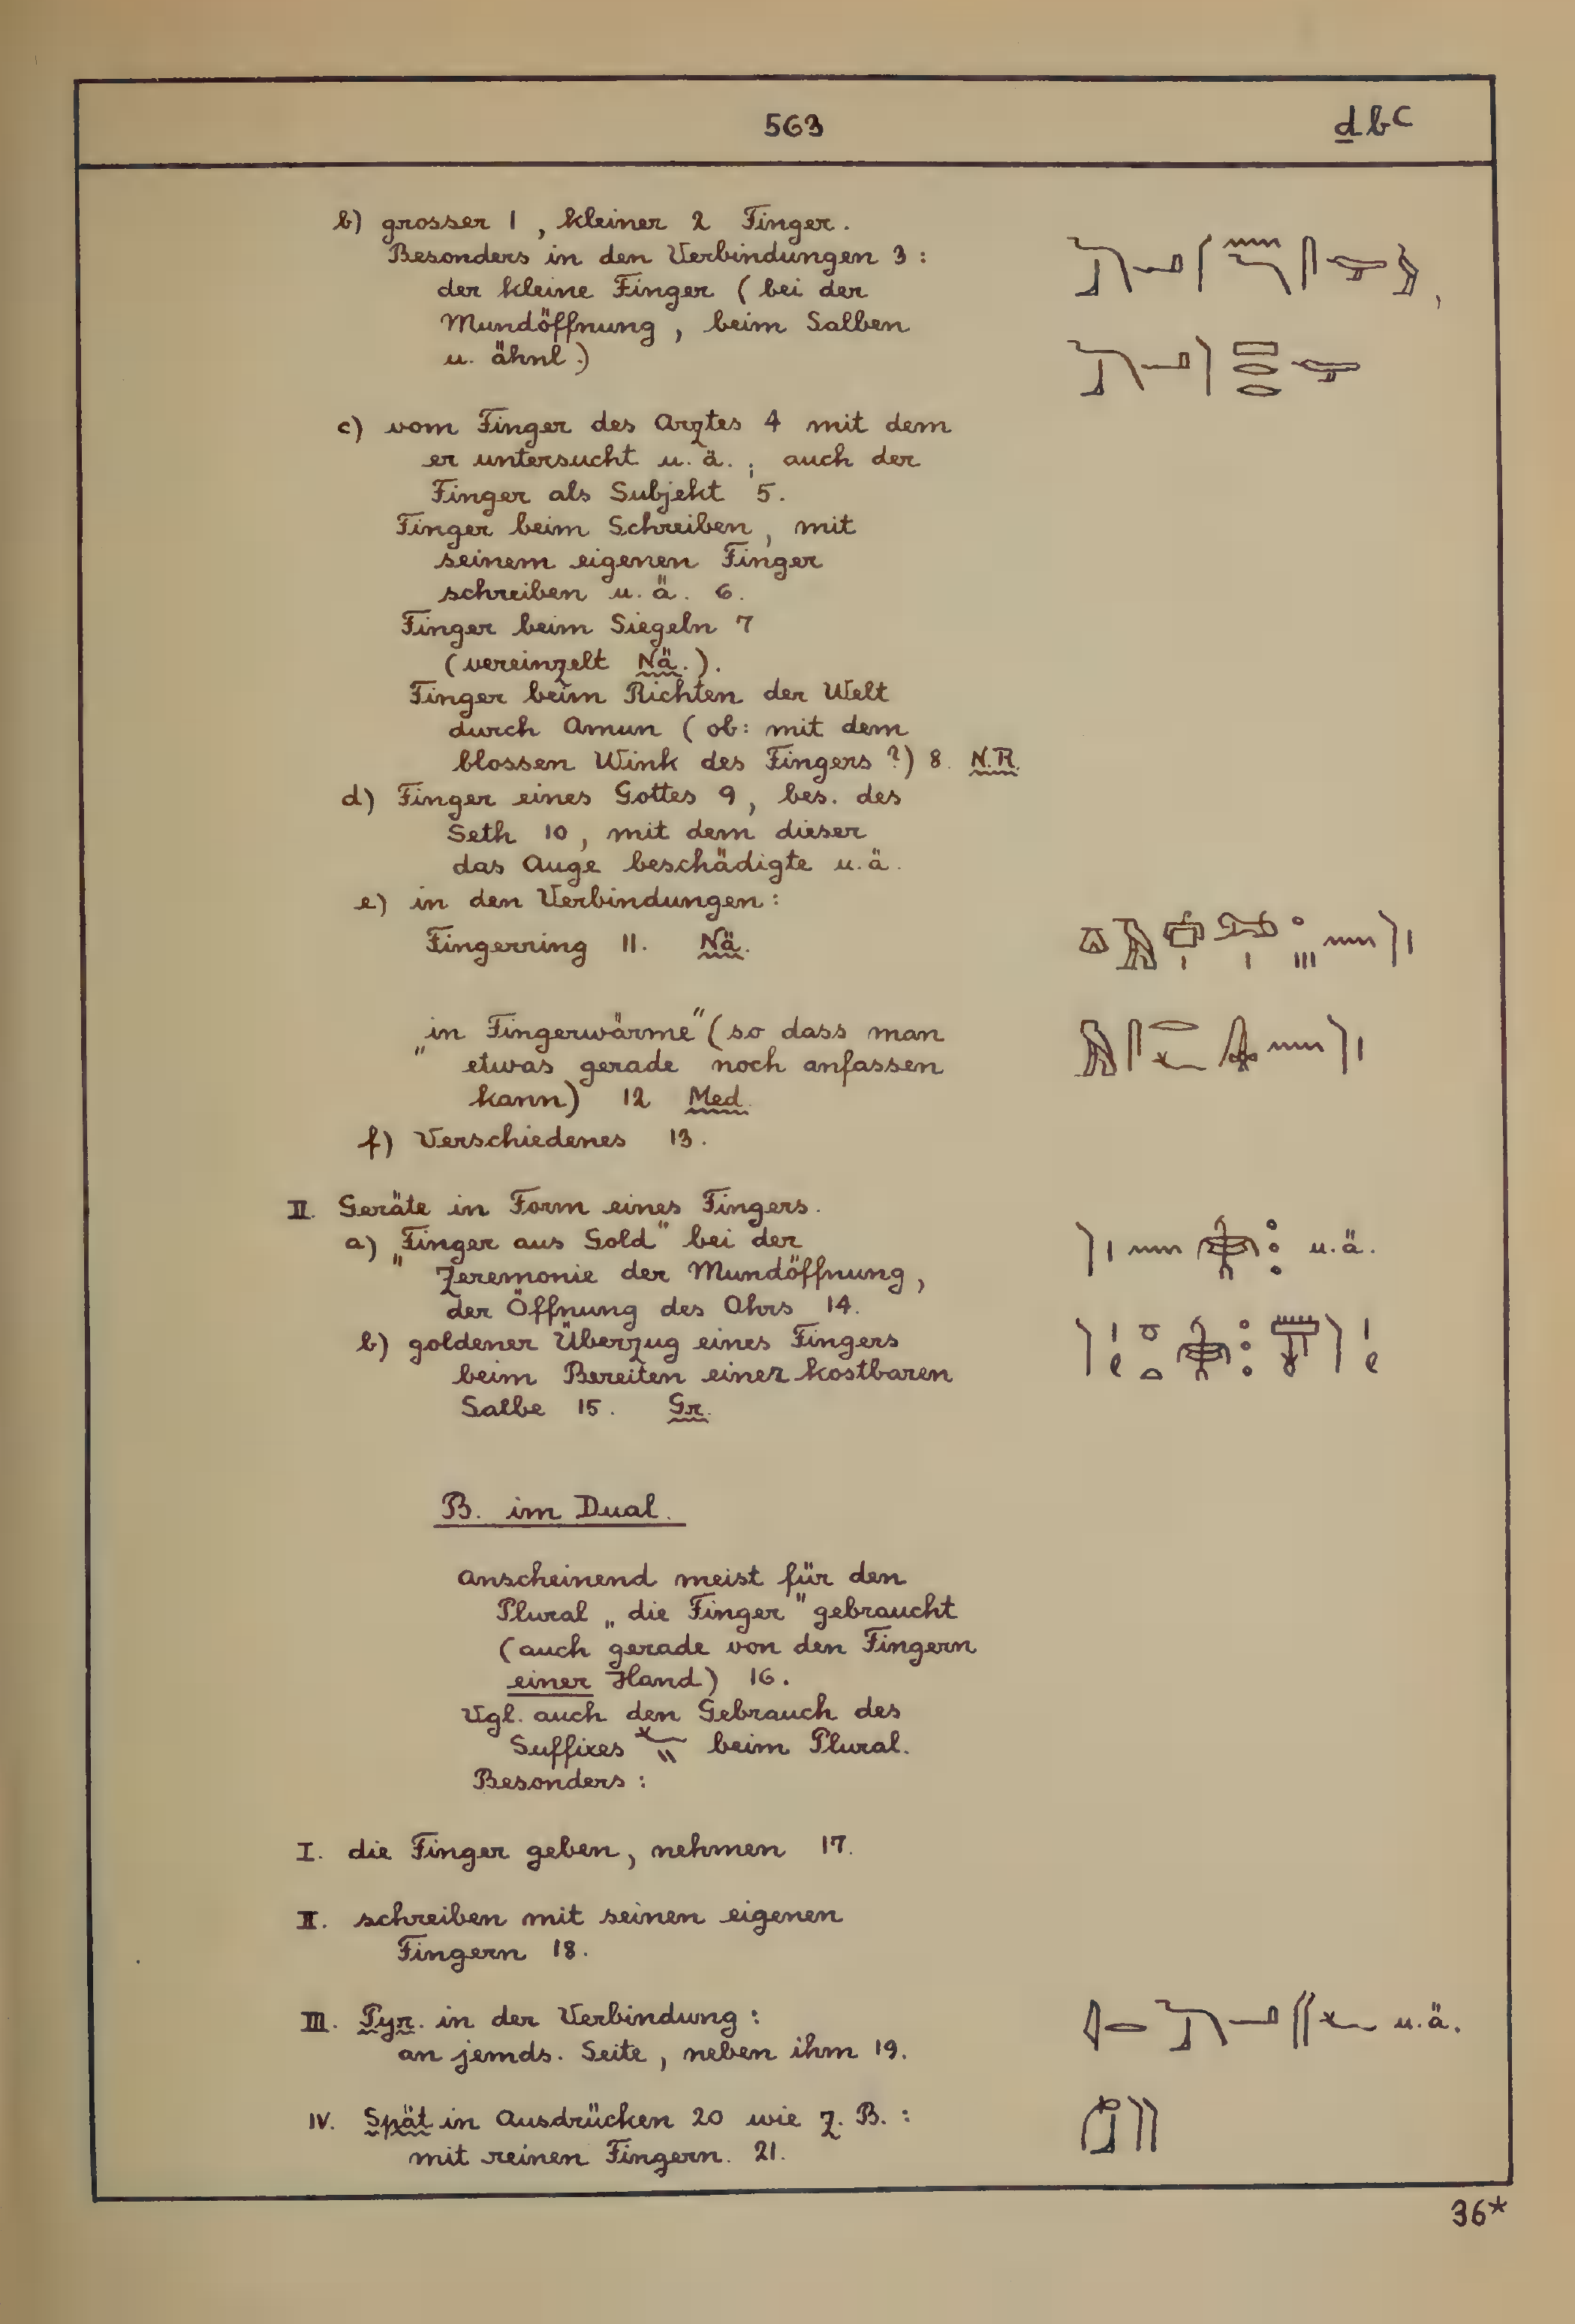 563
ḏbʿ
b) grosser 1, kleiner 2 Finger.
Besonders in den Verbindungen 3:
der kleine Finger (bei der
Mundöffnung, beim Salben
u. ähnl.)
c) vom Finger des Arztes 4 mit dem
er untersucht u. ä.; auch der
Finger als Subjekt 5.
Finger beim Schreiben, mit
seinem eigenen Finger
schreiben u. ä. 6.
Finger beim Siegeln 7
(vereinzelt Nä.).
Finger beim Richten der Welt
durch Amun (ob: mit dem
blossen Wink des Fingers?) 8. N.R.
d) Finger eines Gottes 9, bes. des
Seth 10, mit dem dieser
das Auge beschädigte u. ä.
e) in den Verbindungen:
Fingerring 11. Nä.
„in Fingerwärme" (so dass man
etwas gerade noch anfassen
kann) 12 Med.
f) Verschiedenes 13.
II. Geräte in Form eines Fingers.
a) „Finger aus Gold" bei der
Zeremonie der Mundöffnung,
der Öffnung des Ohrs 14.
u. ä.
b) goldener Überzug eines Fingers
beim Bereiten einer kostbaren
Salbe 15. Gr.
B. im Dual.
Anscheinend meist für den
Plural „die Finger" gebraucht
(auch gerade von den Fingern
einer Hand) 16.
Vgl. auch den Gebrauch des
Suffixes beim Plural.
Besonders:
I. die Finger geben, nehmen 17.
II. schreiben mit seinen eigenen
Fingern 18.
III. Pyr. in der Verbindung:
an jemds. Seite, neben ihm 19.
u. ä.
IV. Spät in Ausdrücken 20 wie z. B.:
mit reinen Fingern. 21.
36*